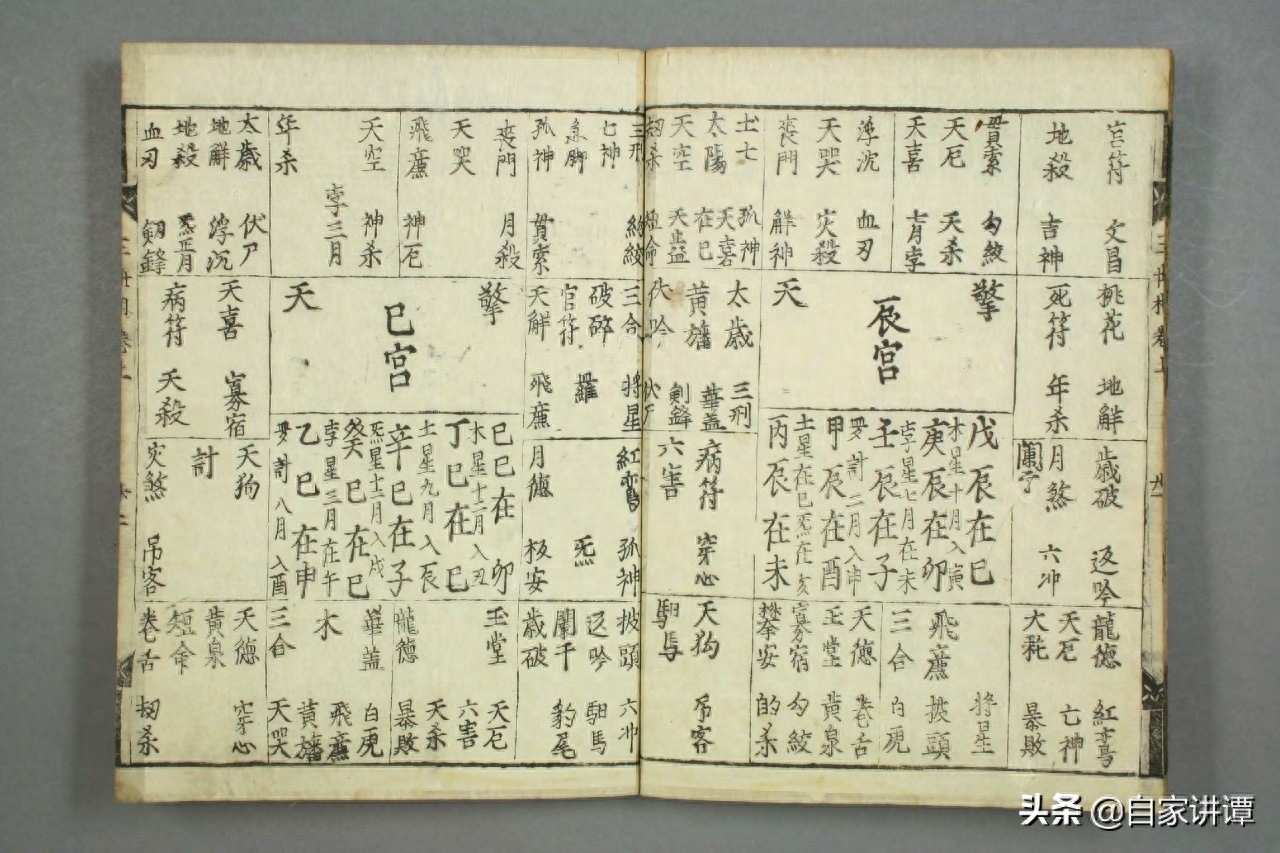 三世相卷上
官符 文昌
地殺 吉神
貫索 勾絞
天厄 天杀
天喜 七月孛
浮沉 血刃
天哭 灾殺
喪門 解神
孤神
太陽 天喜 在巳
天空
劫杀 短命
桃花 地解
死符 年杀
擎
辰宮
天
太歲 三刑
黃旛 華盖 劍鋒
伏吟 伏尸
歲破 返吟
月煞 六冲
戊辰在巳
木星十月入寅
庚辰在卯
孛星七月在未
壬辰在子
罗計二月入申
甲辰在酉
土星在巳炁在亥
丙辰在未
病符 穿心
六害
龍德 紅鸞
天厄 亡神
大耗 暴敗
將星
飛廉 披頭
三合 白虎
天德 卷舌
玉堂 黃泉
寡宿 勾絞
攀安 的杀
天狗 吊客
馹馬
三刑 勾絞
七神
急脚
孤神 貫索
喪門 月殺
天哭
飛廉 神厄
天空 神杀
孛三月
年杀
太歲 伏尸
地解 浮沉
地殺 炁正月
血刃 劍鋒
三合 將星
破碎
官符 羅
天解 飛廉
擎
巳宮
天
天喜 寡宿
病符 天殺
紅鸞 孤神
炁
月德 板安
巳巳在卯
木星十二月入丑
丁巳在巳
土星九月入辰
辛巳在子
炁星十二月入戌
癸巳在巳
孛星三月在午
乙巳在申
罗計八月入酉
天狗
計
灾煞 吊客
披頭 六冲
返吟 馹馬
闌干 豹尾
歲破
玉堂 天厄
六害
天杀
龍德 暴敗
華盖 白虎
木 飛廉
黃旛
三合 天哭
天德 穿心
黃泉
短命
卷舌 劫杀
头条 @自家讲谭